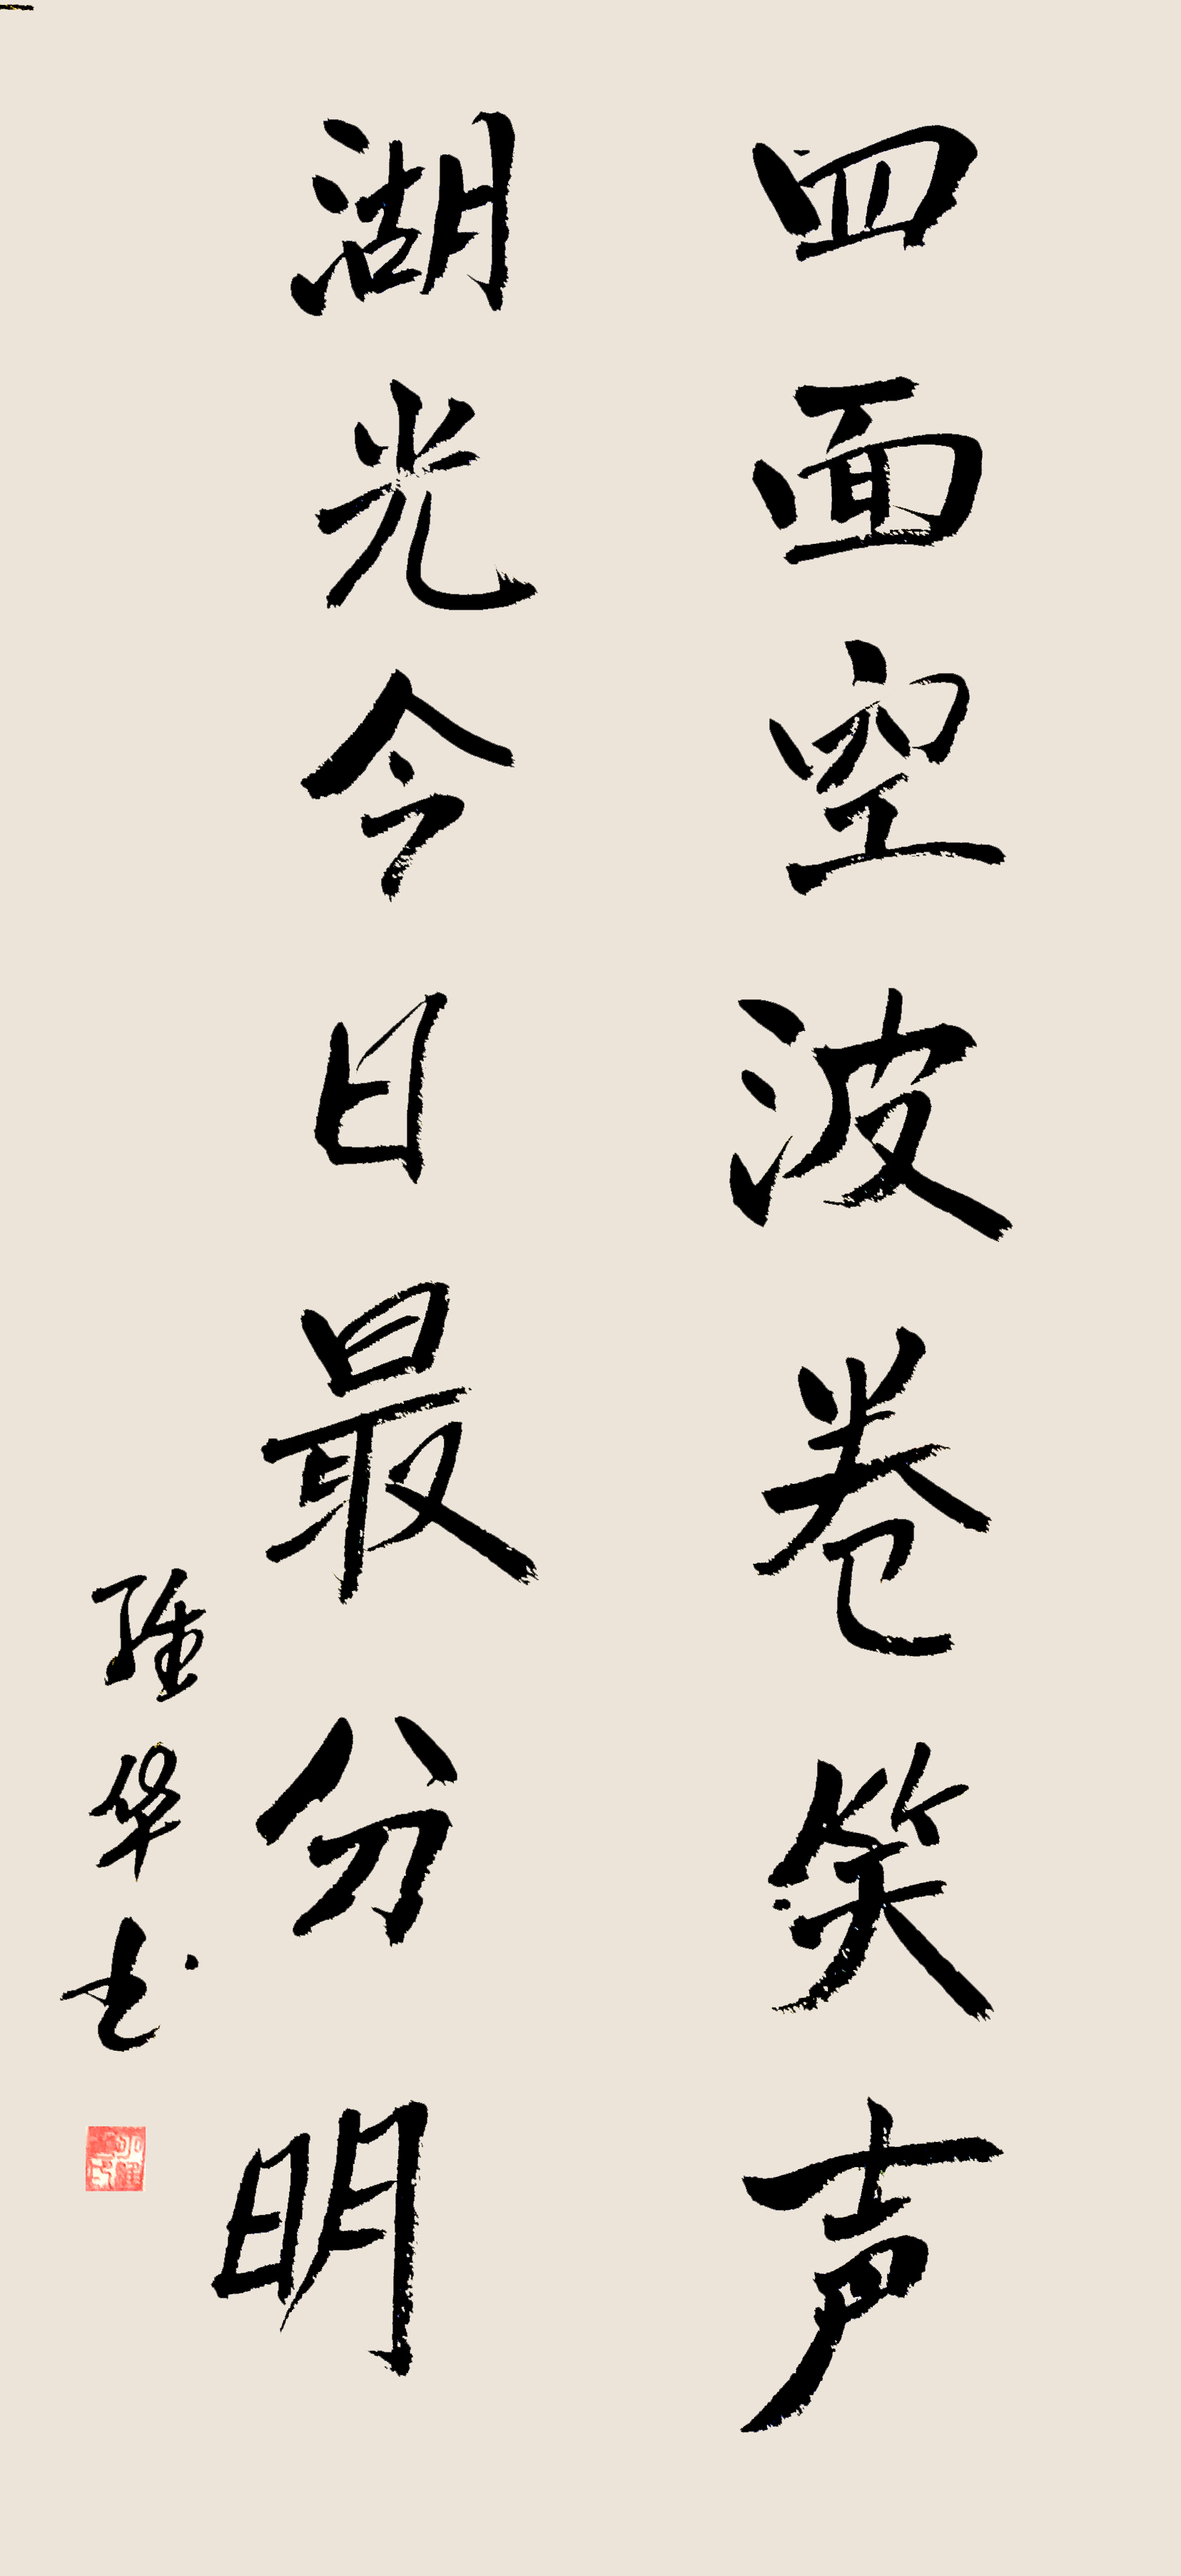 四面空波卷笑声
湖光今日最分明
维华书